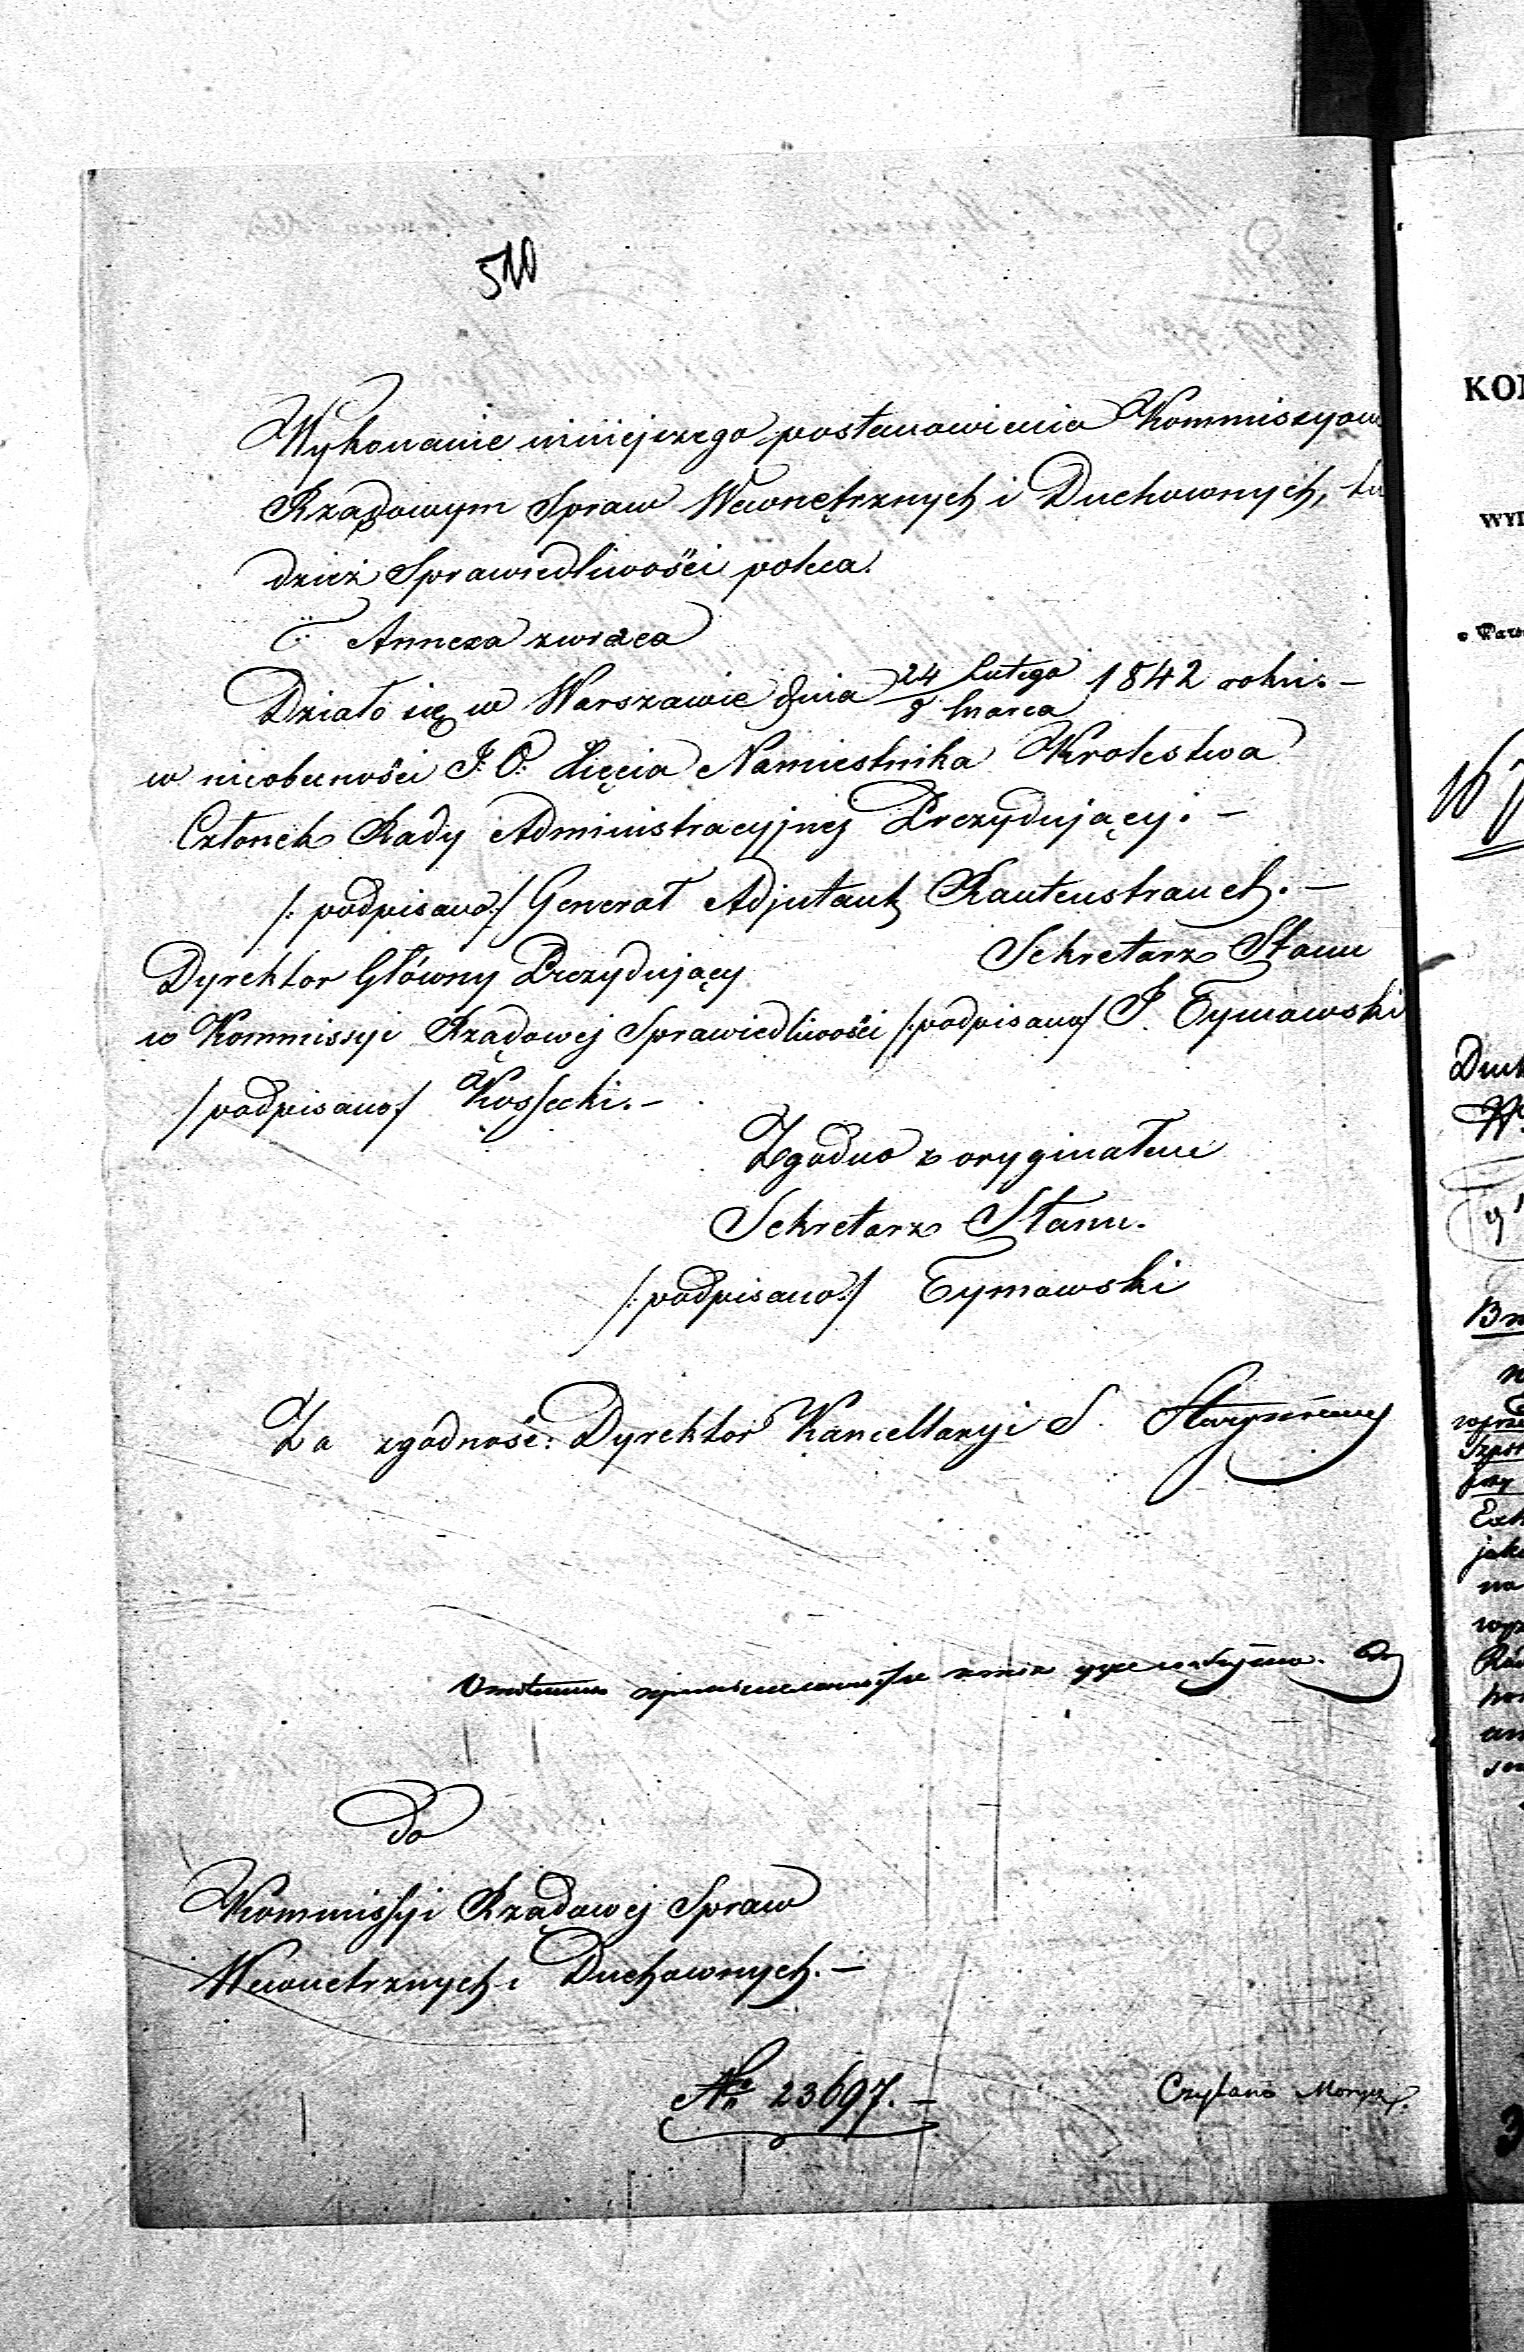 510
Wykonanie niniejszego postanowienia Kommissyom
Rządowym Spraw Wewnętrznych i Duchownych, tu
dzież Sprawiedliwości poleca.
Annexa zwraca
Działo się w Warszawie dnia 24 Lutego / 8 Marca 1842 roku. –
w nieobecności J. O. Xięcia Namiestnika Krolestwa
Członek Rady Administracyjnej Prezydujący. –
/: podpisano :/ Generał Adjutant Rautenstrauch. –
Dyrektor Główny Prezydujący Sekretarz Stanu
w Kommissyi Rządowej Sprawiedliwości /: podpisano :/ J. Tymowski
/ podpisano :/ Kossecki. –
Zgodno z oryginałem
Sekretarz Stanu.
/: podpisano :/ Tymowski
Za zgodność: Dyrektor Kancellaryi S.
Do
Kommissyi Rządowej Spraw
Wewnetrznych i Duchownych. –
No 23697. –
Czytano
KO
WY
167